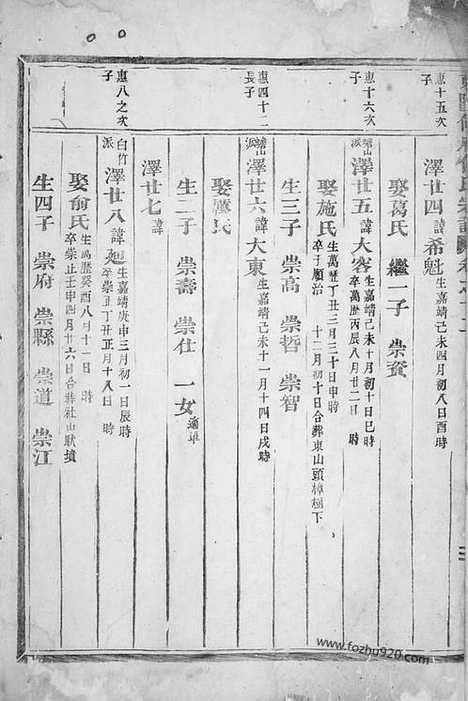 惠十五次子
澤廿四諱希魁生嘉靖己未四月初八日酉時
娶葛氏 繼一子 崇資
惠十六次子
派澤廿五諱大客生嘉靖己未十月初十日巳時
卒萬曆丙辰八月廿二日 時
娶施氏生萬歷丁丑二月二十日申時
卒于順治 十二月初十日合葬東山頭樟樹下
生三子 崇高 崇哲 崇智
惠四十二長子
派澤廿六諱大東生嘉靖己未十一月十四日戌時
娶厲氏
生二子 崇壽 崇仕 一女適
澤廿七諱
惠八之次子
白竹派澤廿八諱 生嘉靖庚申三月初一日辰時
卒崇正丁丑正月十八日 時
娶俞氏生萬歷癸酉八月十一日 時
卒崇正壬申四月廿六日合葬社山畈墳
生四子 崇府 崇縣 崇道 崇江
www.fozhu920.com